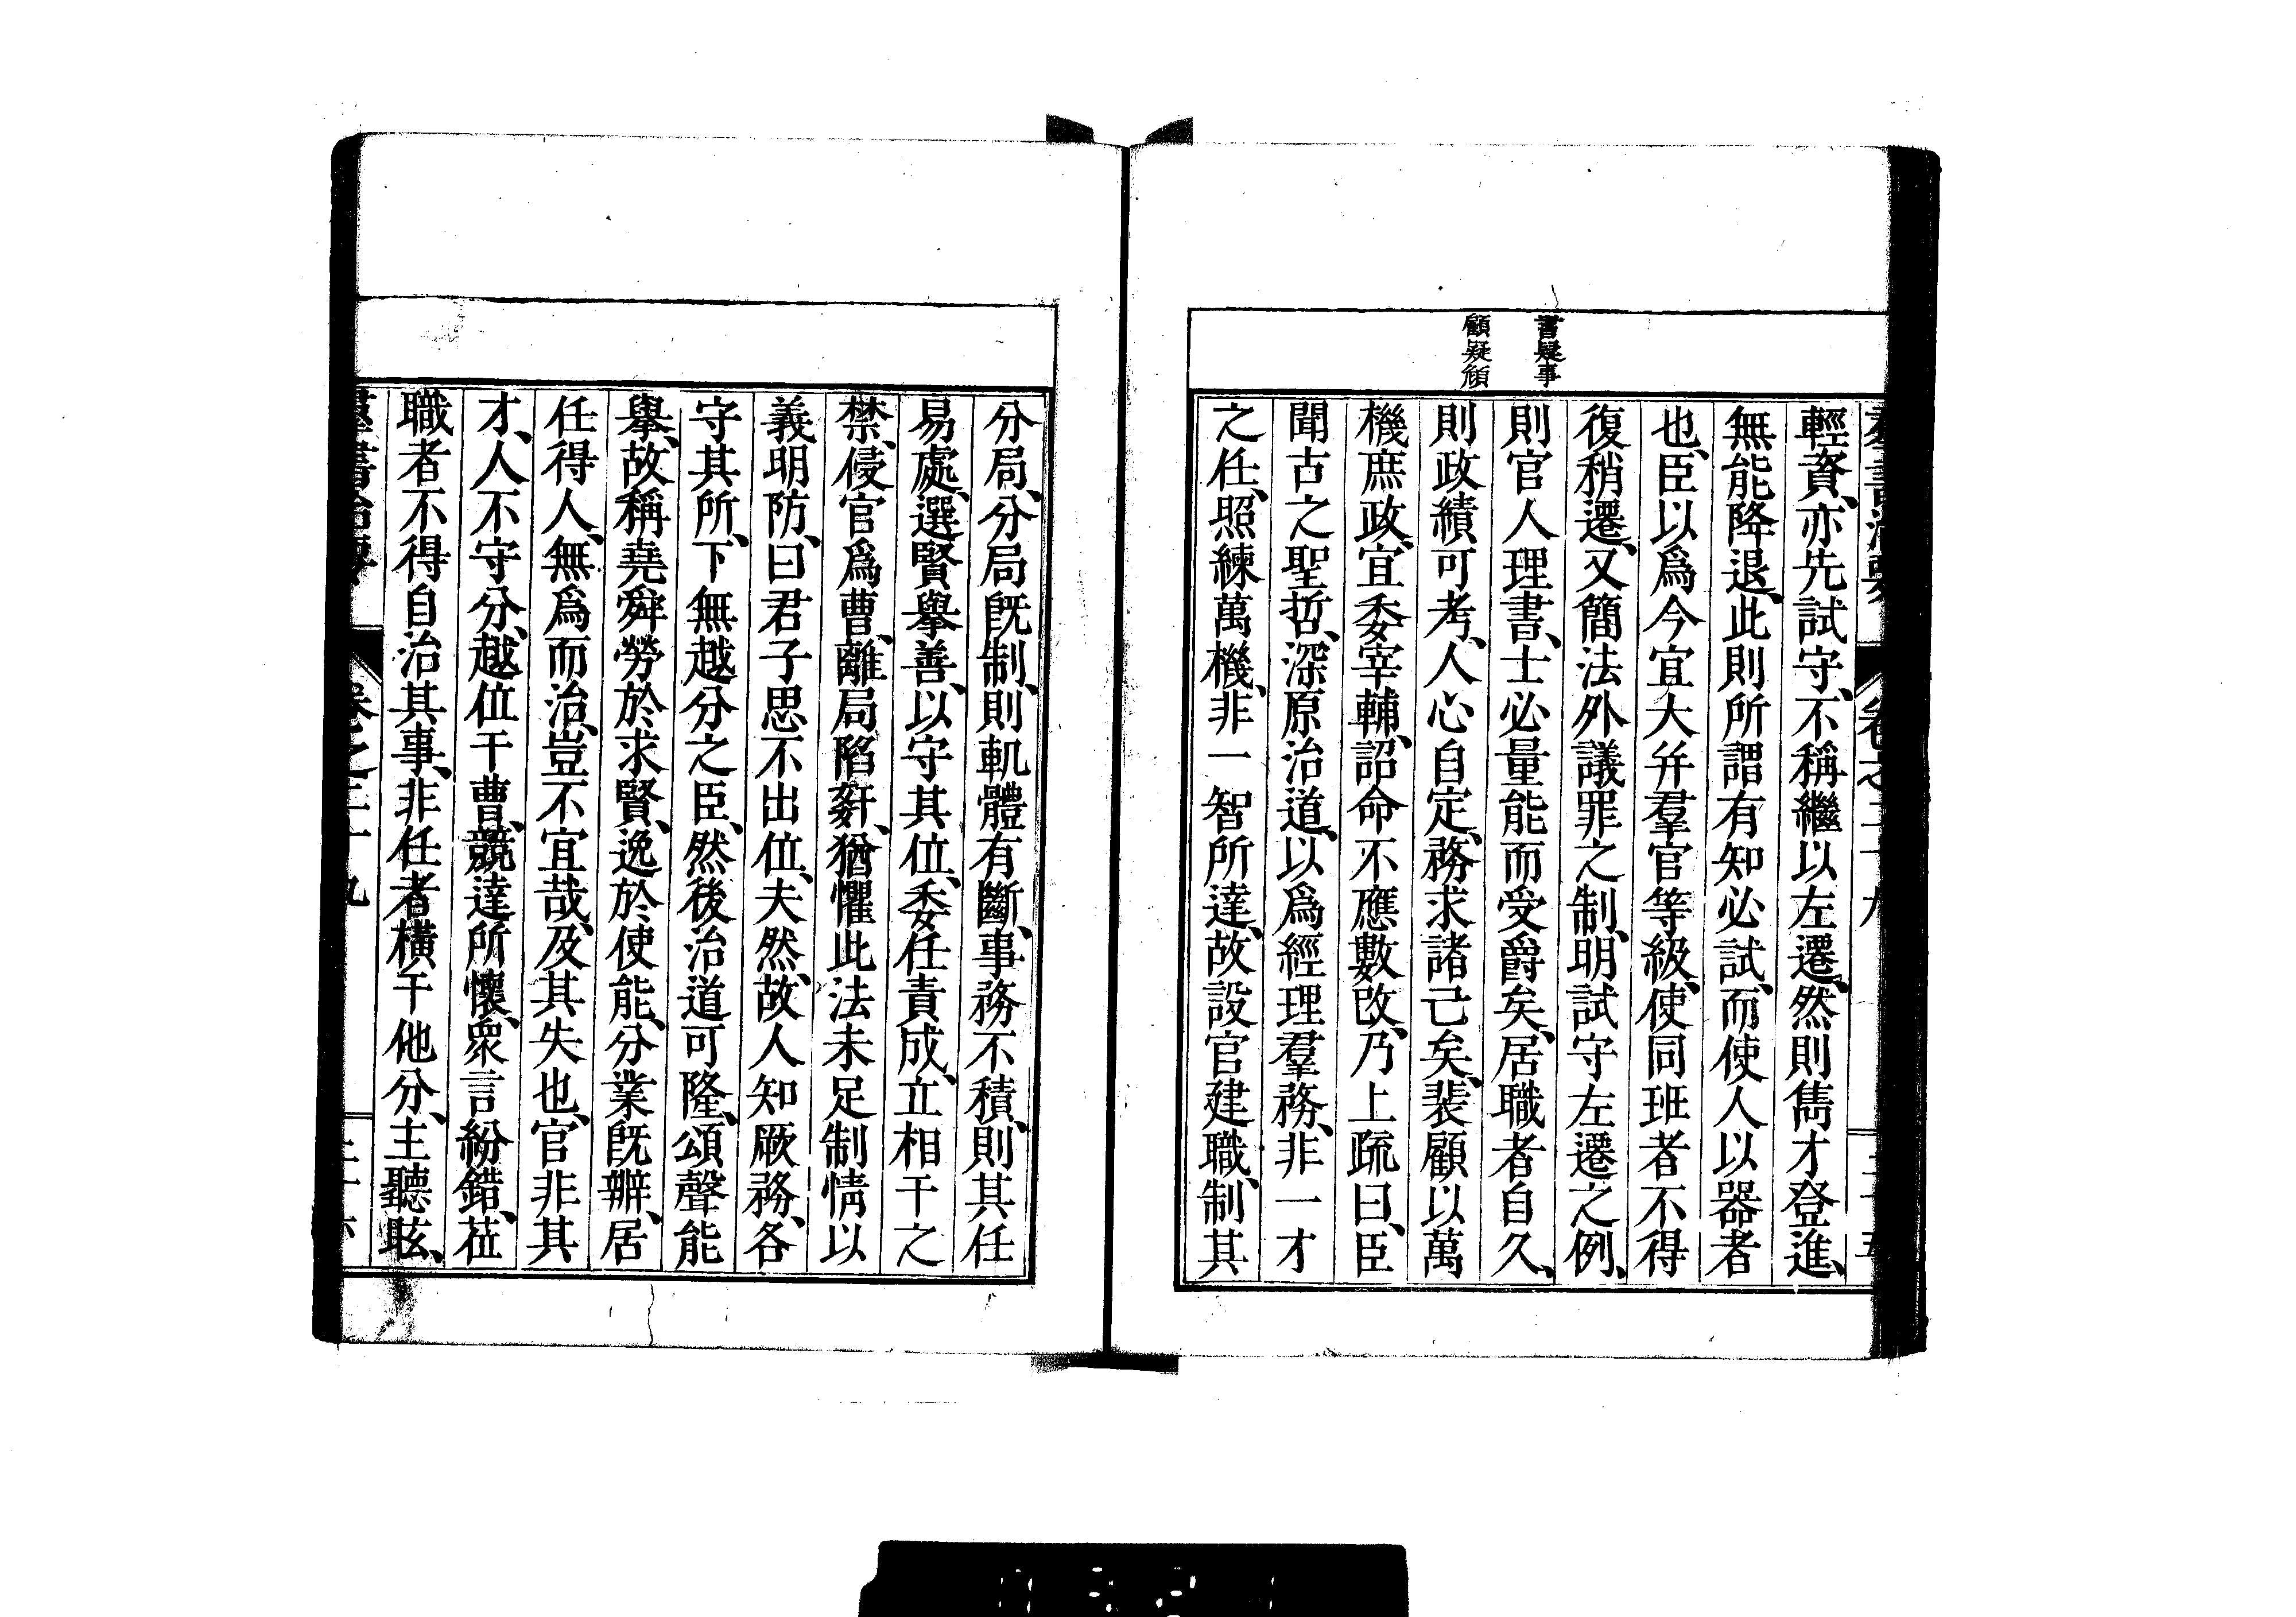 書疑事
顧疑頠
輕資、亦先試守、不稱繼以左遷、然則雋才登進、
無能降退、此則所謂有知必試、而使人以器者
也、臣以爲今宜大幷羣官等級、使同班者不得
復稍遷、又簡法外議罪之制、明試守左遷之例、
則官人理書、士必量能而受爵矣、居職者自久、
則政績可考、人心自定、務求諸己矣、裴顧以萬
機庶政、宜委宰輔、詔命不應數改、乃上疏曰、臣
聞古之聖哲、深原治道、以爲經理羣務、非一才
之任、照練萬機、非一智所達、故設官建職、制其
分局、分局既制、則軌體有斷、事務不積、則其任
易處、選賢擧善、以守其位、委任責成、立相干之
禁、侵官爲曹、離局陷姧、猶懼此法未足制情以
義明防、曰君子思不出位、夫然、故人知厥務、各
守其所、下無越分之臣、然後治道可隆、頌聲能
擧、故稱堯舜勞於求賢、逸於使能、分業既辨、居
任得人、無爲而治、豈不宜哉、及其失也、官非其
才、人不守分、越位干曹、競達所懷、衆言紛錯、莅
職者不得自治其事、非任者橫干他分、主聽眩、